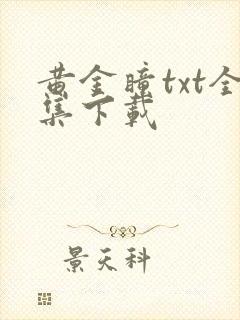 黄金瞳txt全
集下载
景天科